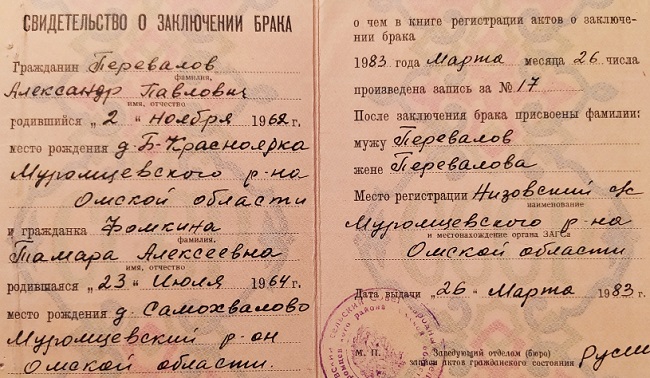 СВИДЕТЕЛЬСТВО О ЗАКЛЮЧЕНИИ БРАКА
Гражданин Перевалов
фамилия,
Александр Павлович
имя, отчество
родившийся „ 2 “ ноября 1962 г.
место рождения д. Б-Красноярка
Муромцевского р-на
Омской области
и гражданка Фомкина
фамилия,
Тамара Алексеевна
имя, отчество
родившаяся „ 23 “ Июля 1964 г.
место рождения д. Самохвалово
Муромцевский р-он
Омской области.
о чем в книге регистрации актов о заключе-
нии брака
1983 года Марта месяца 26 числа
произведена запись за № 17
После заключения брака присвоены фамилии:
мужу Перевалов
жене Перевалова
Место регистрации Низовский с/к
наименование
Муромцевского р-на
и местонахождение органа ЗАГСа
Омской области
Дата выдачи „ 26 “ Марта 1983 г.
М. П. Заведующий отделом (бюро)
записи актов гражданского состояния